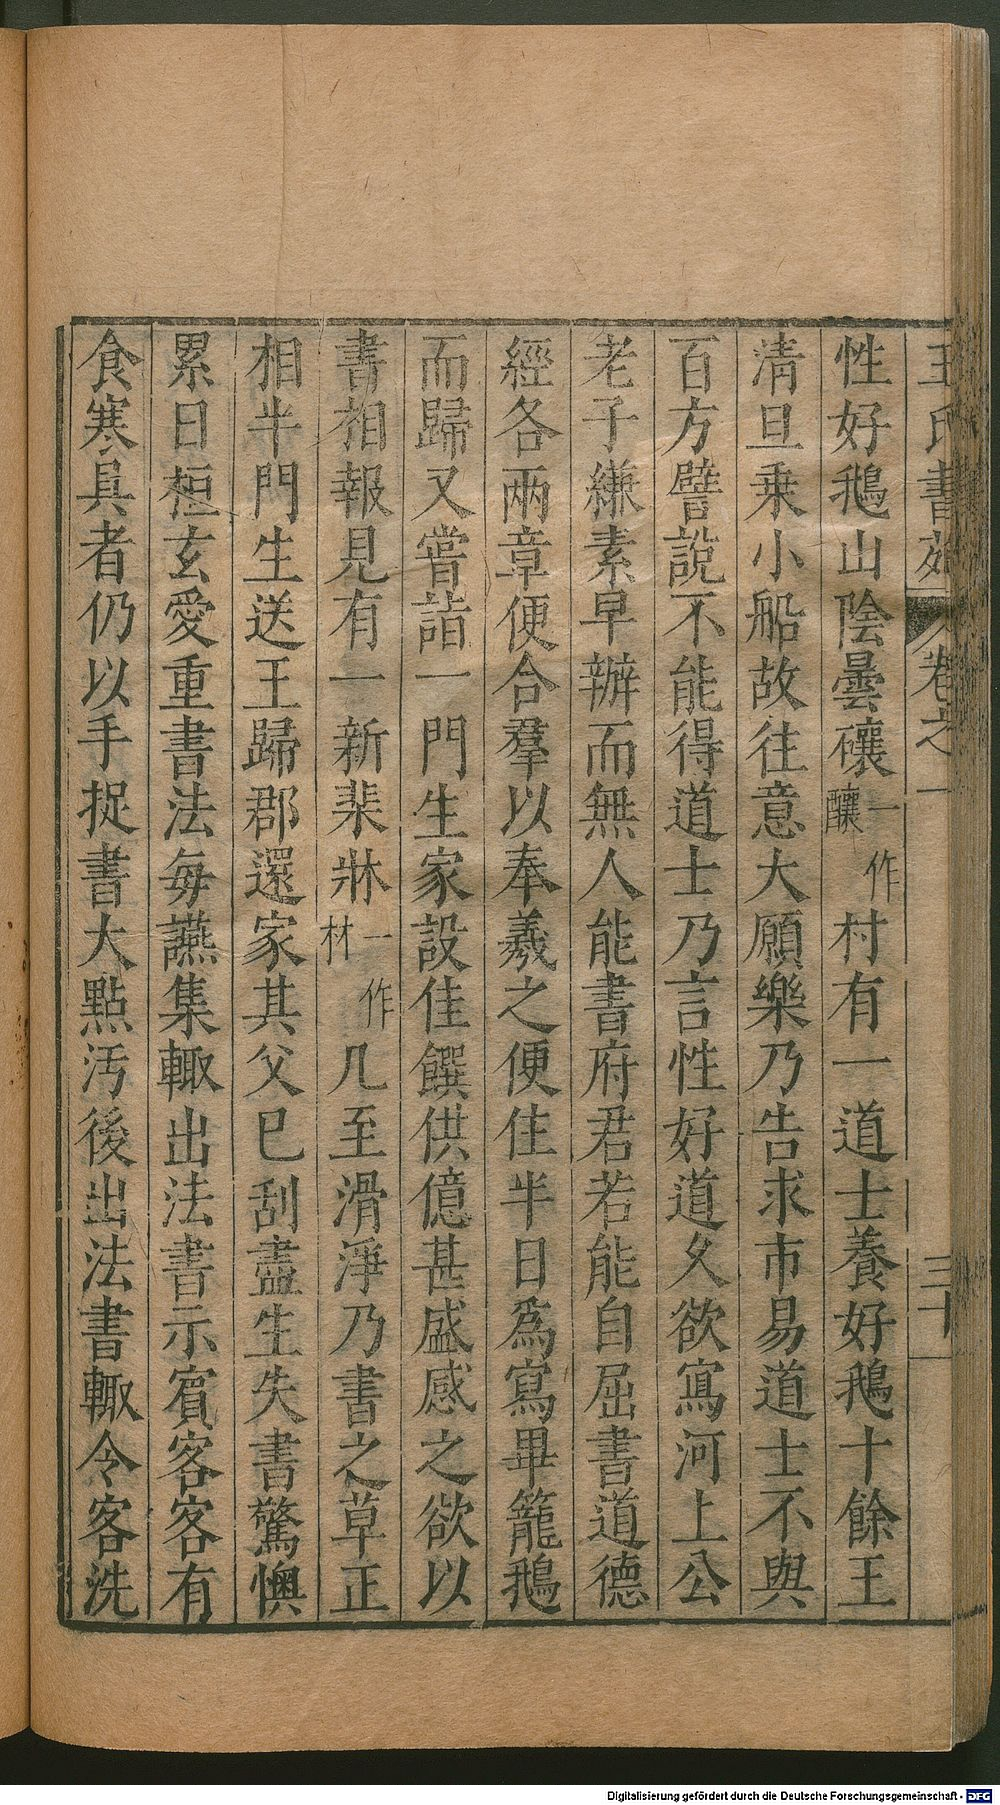 王氏書苑 卷之一 三十
性好鵝山陰曇礲一作釀村有一道士養好鵝十餘王
清旦乗小船故往意大願樂乃告求市易道士不與
百方譬說不能得道士乃言性好道久欲寫河上公
老子縑素早辦而無人能書府君若能自屈書道德
經各兩章便合羣以奉羲之便住半日爲寫畢籠鵝
而歸又嘗詣一門生家設佳饌供億甚盛感之欲以
書相報見有一新棐牀一作材几至滑淨乃書之草正
相半門生送王歸郡還家其父已刮盡生失書驚懊
累日桓玄愛重書法每讌集輙出法書示賓客客有
食寒具者仍以手捉書大點汚後出法書輙令客洗
Digitalisierung gefördert durch die Deutsche Forschungsgemeinschaft - DFG